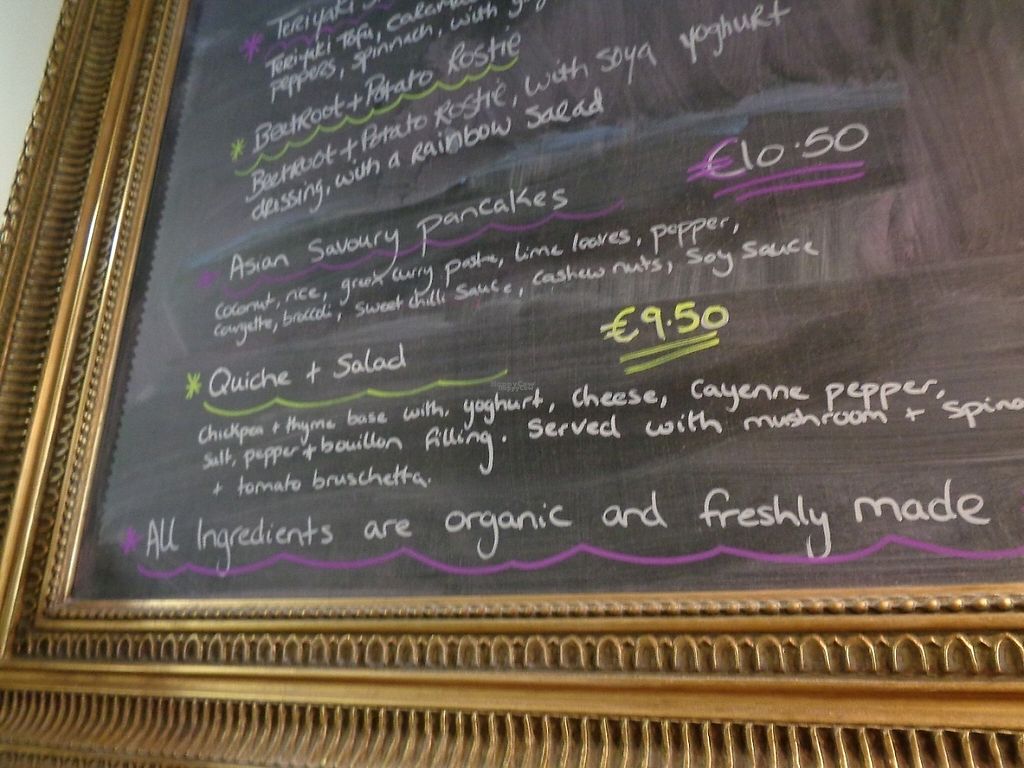 Teriyaki
Teriyaki Tofu,
peppers, spinnach, with
BeetRoot + Potato Rostie
BeetRoot + Potato Rostie, with Soya yoghurt
dressing, with a Rainbow Salad
€10.50
Asian Savoury pancakes
Coconut, rice, green curry paste, lime leaves, pepper,
Courgette, broccoli, sweet chilli sauce, cashew nuts, Soy Sauce
€9.50
Quiche + Salad
Chickpea + thyme base with, yoghurt, cheese, Cayenne pepper,
Salt, pepper + bouillon filling. Served with mushroom +
+ tomato bruschetta.
All Ingredients are organic and freshly made
HappyCow